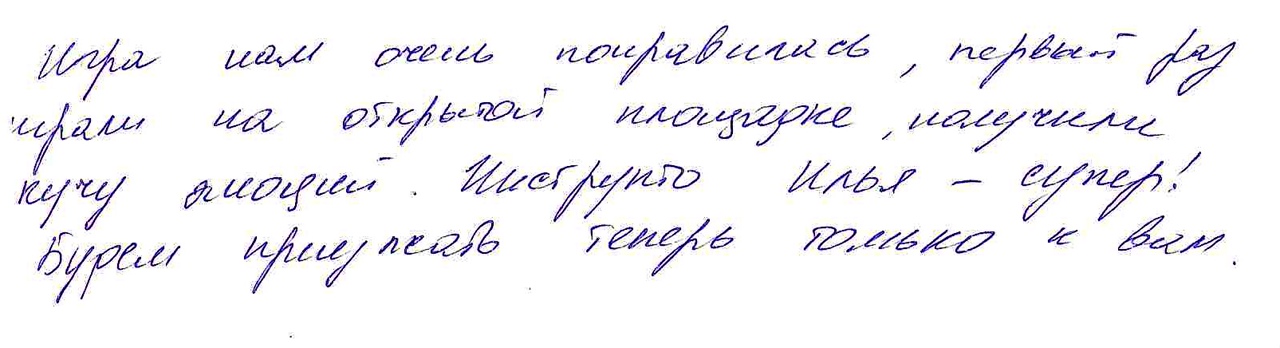 Игра нам очень понравилась, первый раз
играли на открытой площадке, получили
кучу эмоций. Инструкто Илья – супер!
Будем приезжать теперь только к вам.